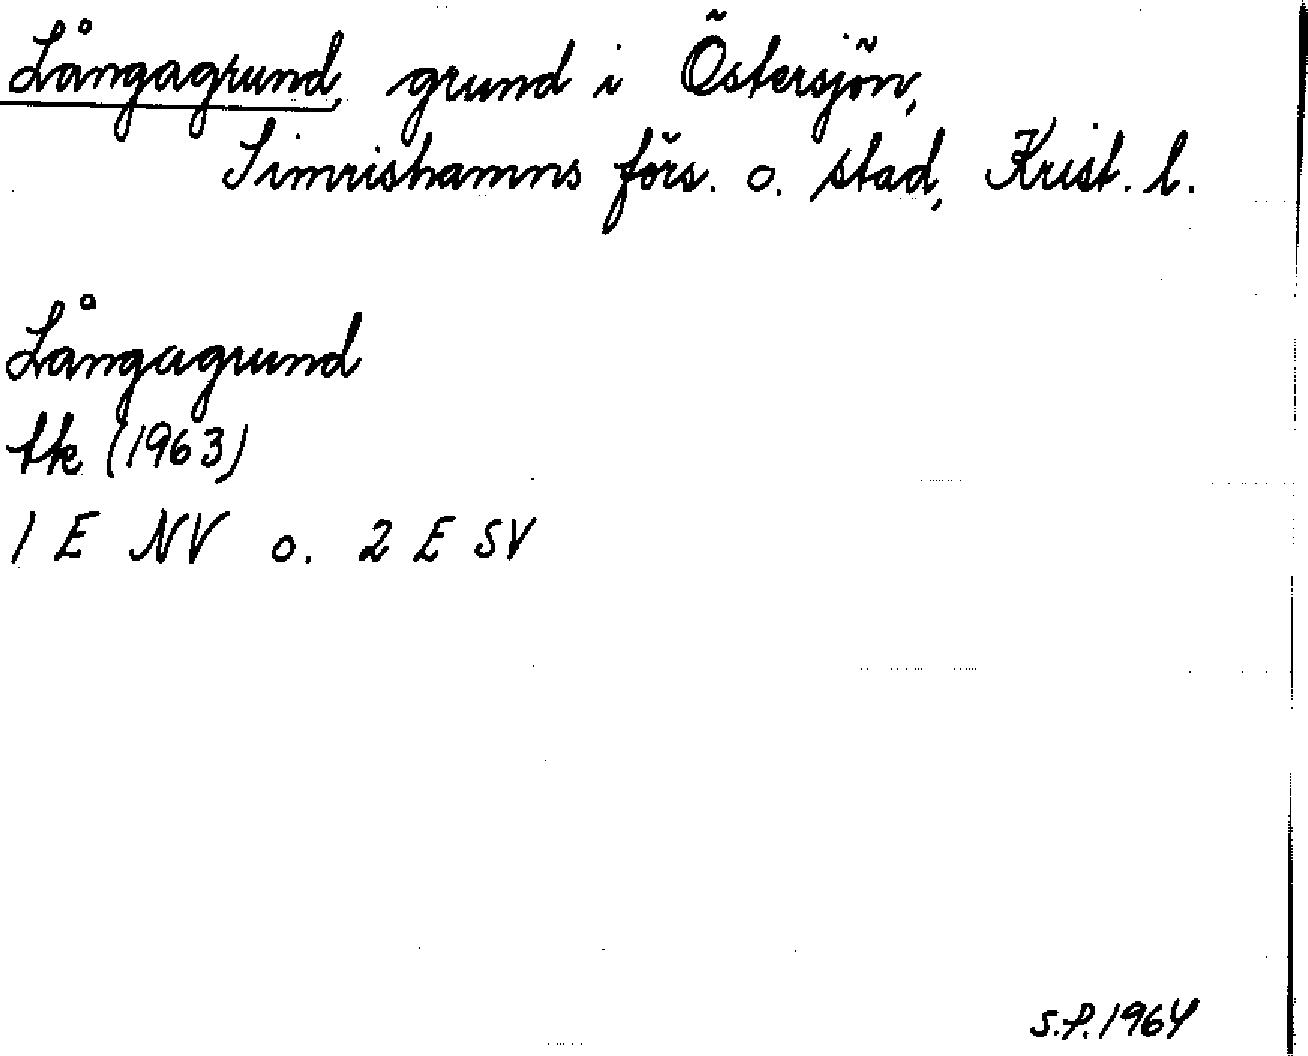 Långagrund, grund i Östersjön,
Simrishamns förs. o. stad, Krist. l.
Långagrund
tk (1963)
1 E NV o. 2 E SV
S.P. 1964